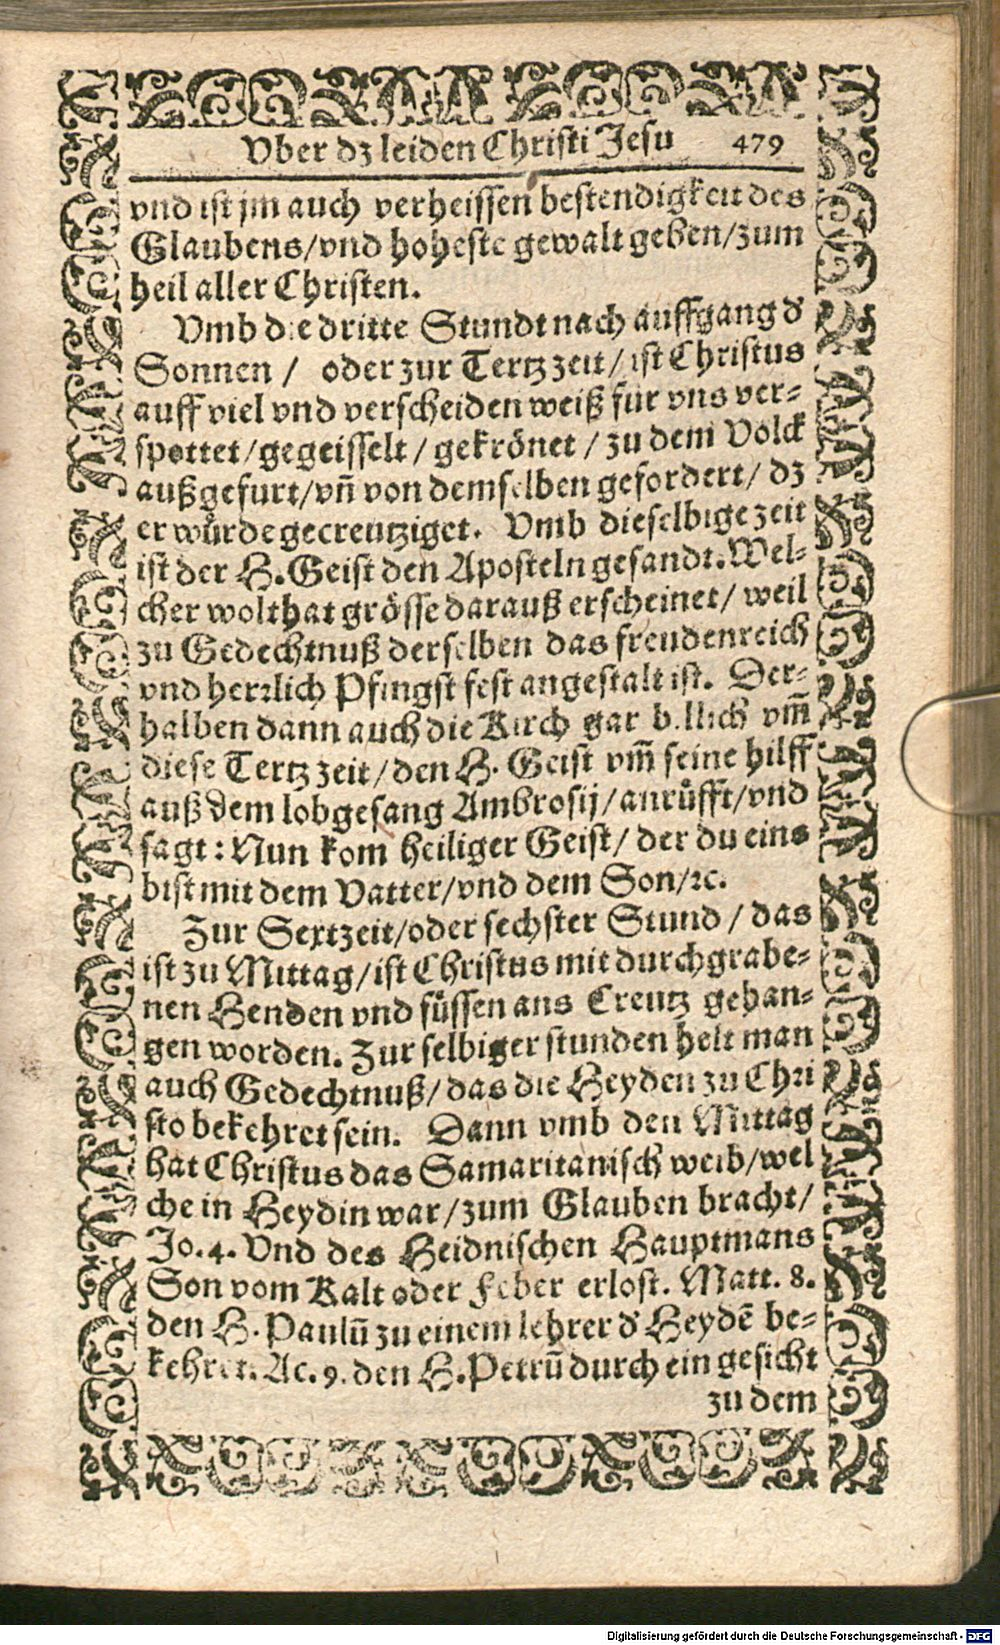 Vber dz leiden Christi Jesu 479
vnd ist jm auch verheissen bestendigkeit des
Glaubens/vnd hoheste gewalt geben/zum
heil aller Christen.
Vmb die dritte Stundt nach auffgang d'
Sonnen / oder zur Tertz zeit / ist Christus
auff viel vnd verscheiden weiß für vns ver-
spottet/gegeisselt / gekrönet / zu dem Volck
außgefurt/vñ von demselben gefordert/ dz
er wůrde gecreutziget. Vmb dieselbige zeit
ist der H. Geist den Aposteln gesandt. Wel-
cher wolthat grösse darauß erscheinet/ weil
zu Gedechtnuß derselben das freudenreich
vnd herꝛlich Pfingst fest angestalt ist. Der-
halben dann auch die Kirch gar billich vm̃
diese Tertz zeit/den H. Geist vm̃ seine hilff
auß dem lobgesang Ambrosij/anrůfft/vnd
sagt: Nun kom heiliger Geist/ der du eins
bist mit dem Vatter/vnd dem Son/ꝛc.
Zur Sextzeit/oder sechster Stund / das
ist zu Mittag/ist Christus mit durchgrabe-
nen Henden vnd füssen ans Creutz gehan-
gen worden. Zur selbiger stunden helt man
auch Gedechtnuß/das die Heyden zu Chri
sto bekehret sein. Dann vmb den Mittag
hat Christus das Samaritanisch weib/wel
che in Heydin war/zum Glauben bracht/
Jo. 4. Vnd des Heidnischen Hauptmans
Son vom Kalt oder Feber erlost. Matt. 8.
den H. Paulũ zu einem lehrer d' Heydẽ be-
kehret. Ac. 9. den H. Petrũ durch ein gesicht
zu dem
Digitalisierung gefördert durch die Deutsche Forschungsgemeinschaft - DFG